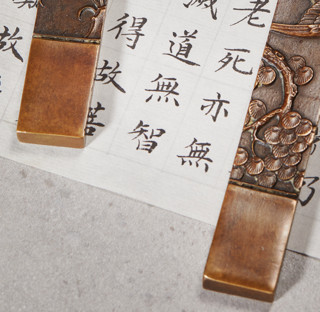 老死亦無
滅道無智
得故菩
故